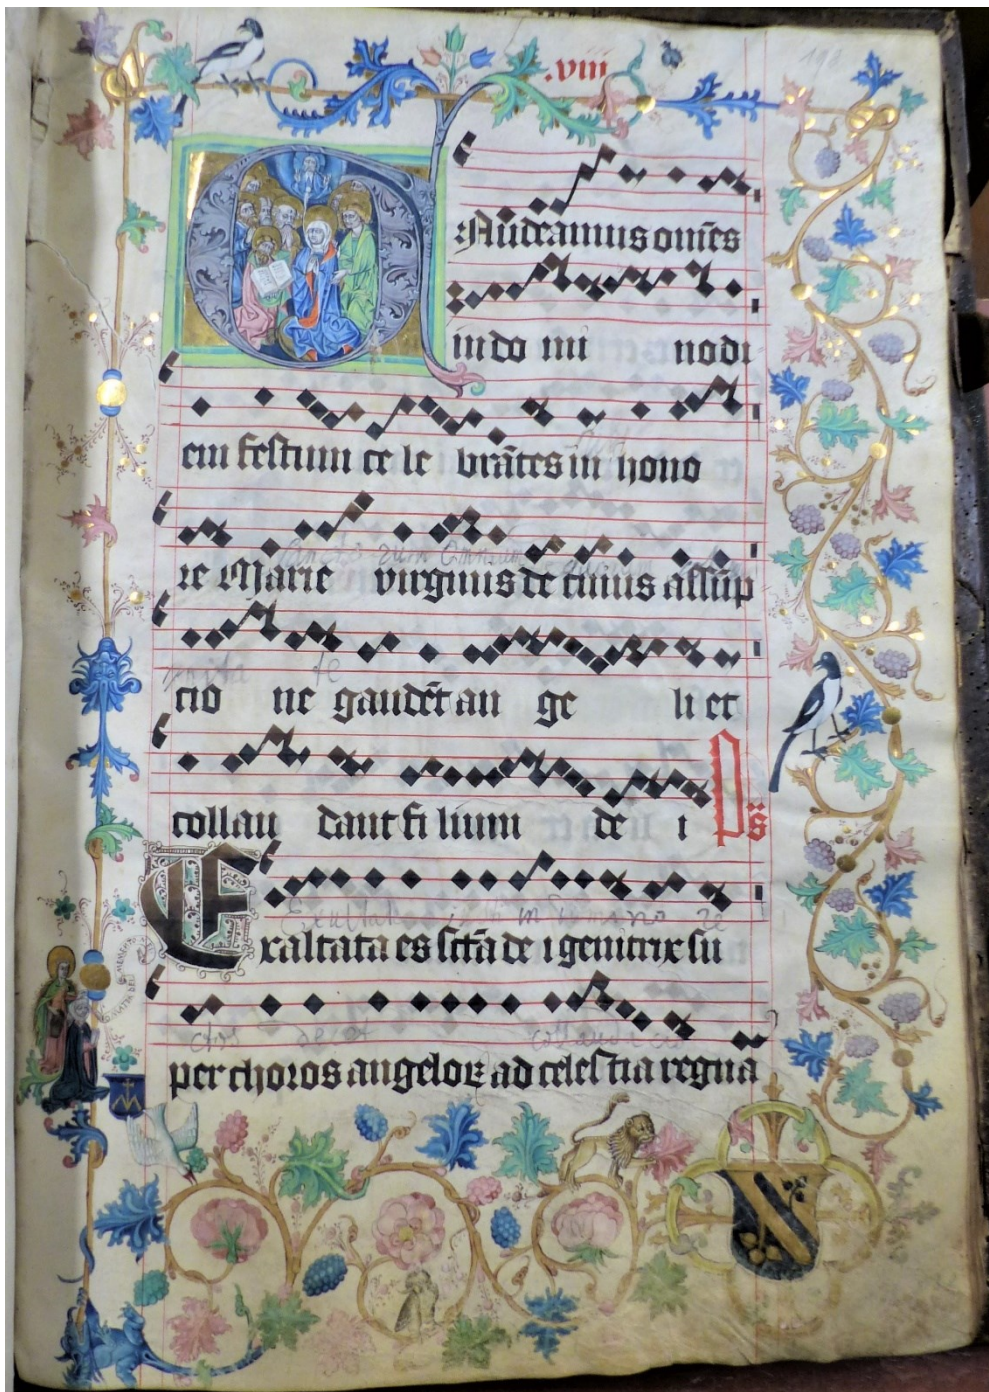 .viii
198
Gaudeamus om̄es
in do mi no di
em festum ce le brātes in hono
re Marie virginis de cuius assūp
cio ne gaudēt an ge li et
collau dant fi lium de i p̄s
Exaltata es sc̄ta de i genitrix su
per choros angeloꝝ ad celestia regna